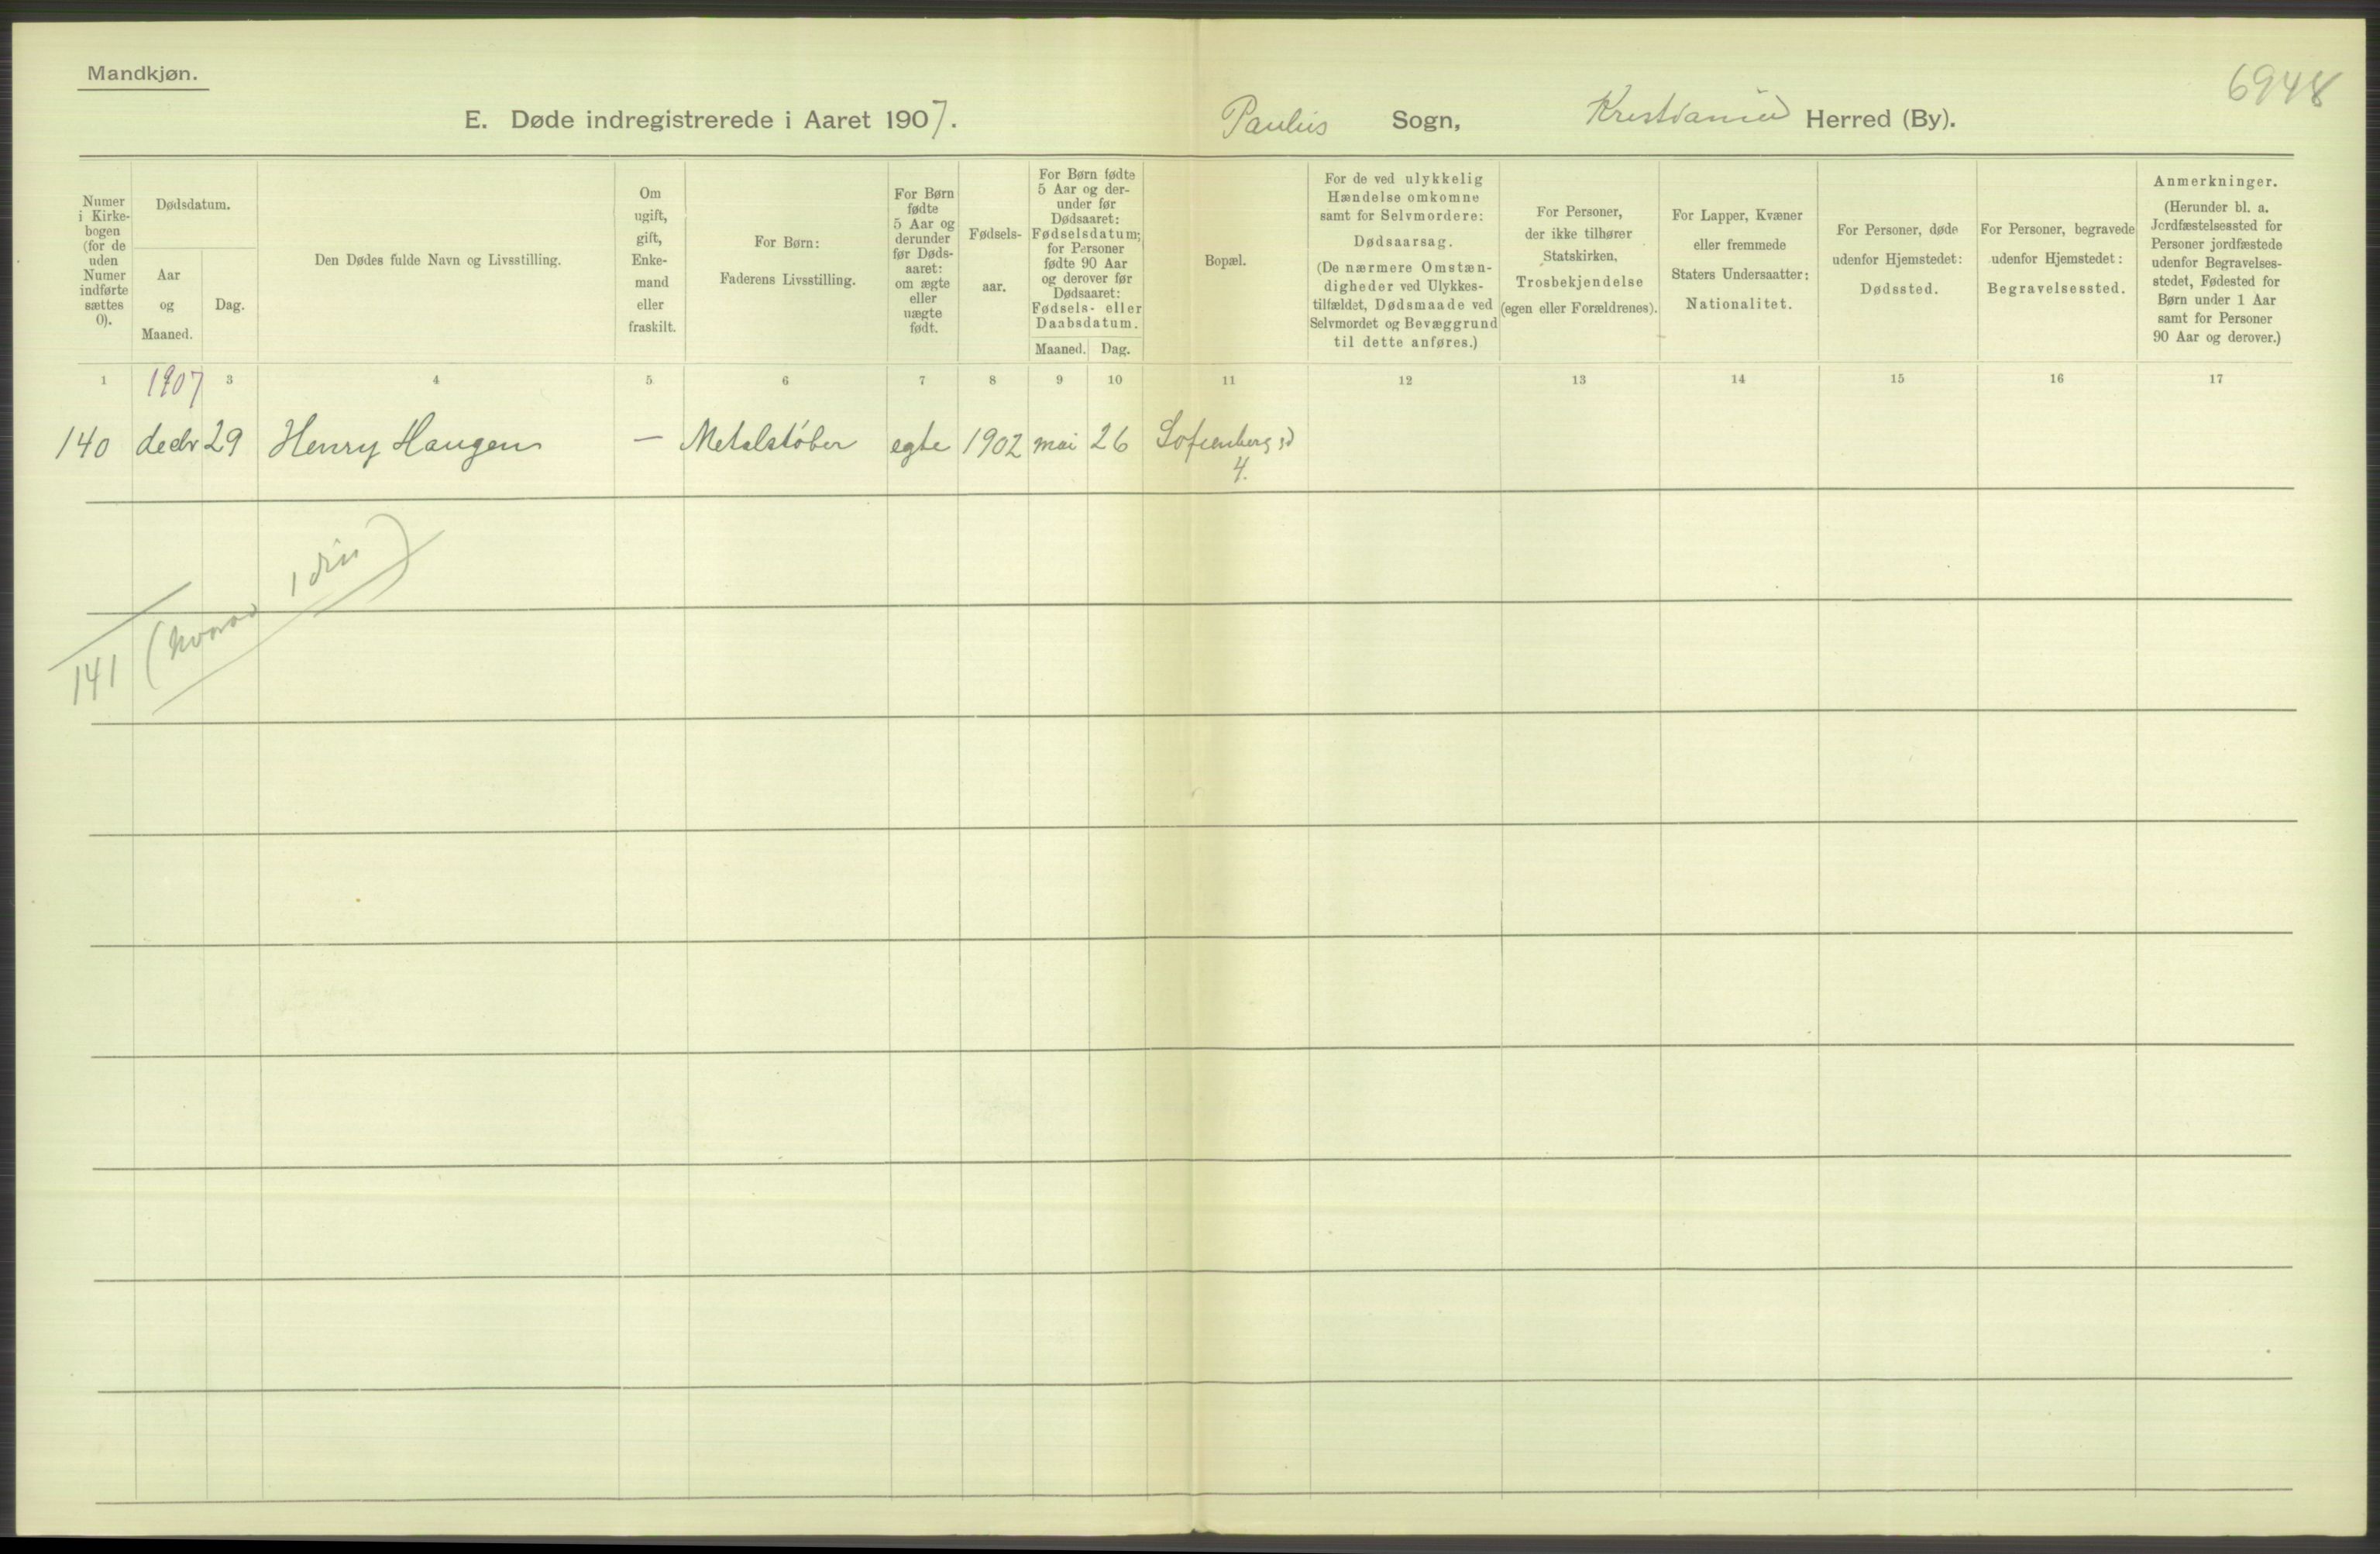 Mandkjøn.
6948
E. Døde indregistrerede i Aaret 1907. Paulus Sogn, Kristiania Herred (By).
Numer
i Kirke-
bogen
(for de
uden
Numer
indførte
sættes
0).
Dødsdatum.
Aar
og
Maaned.
Dag.
Den Dødes fulde Navn og Livsstilling.
Om
ugift,
gift,
Enke-
mand
eller
fraskilt.
For Børn:
Faderens Livsstilling.
For Børn
fødte
5 Aar og
derunder
før Døds-
aaret:
om ægte
eller
uægte
født.
Fødsels-
aar.
For Børn fødte
5 Aar og der-
under før
Dødsaaret:
Fødselsdatum;
for Personer
fødte 90 Aar
og derover før
Dødsaaret:
Fødsels- eller
Daabsdatum.
Maaned. Dag.
Bopæl.
For de ved ulykkelig
Hændelse omkomne
samt for Selvmordere:
Dødsaarsag.
(De nærmere Omstæn-
digheder ved Ulykkes-
tilfældet, Dødsmaade ved
Selvmordet og Bevæggrund
til dette anføres.)
For Personer,
der ikke tilhører
Statskirken,
Trosbekjendelse
(egen eller Forældrenes).
For Lapper, Kvæner
eller fremmede
Staters Undersaatter:
Nationalitet.
For Personer, døde
udenfor Hjemstedet:
Dødssted.
For Personer, begravede
udenfor Hjemstedet:
Begravelsessted.
Anmerkninger.
(Herunder bl. a.
Jordfæstelsessted for
Personer jordfæstede
udenfor Begravelses-
stedet, Fødested for
Børn under 1 Aar
samt for Personer
90 Aar og derover.)
1 1907 3 4 5 6 7 8 9 10 11 12 13 14 15 16 17
140 decbr 29 Henry Haugen — Metalstøber egte 1902 mai 26 Sofienberg gd
4.
141 (hvoraf 1 din)